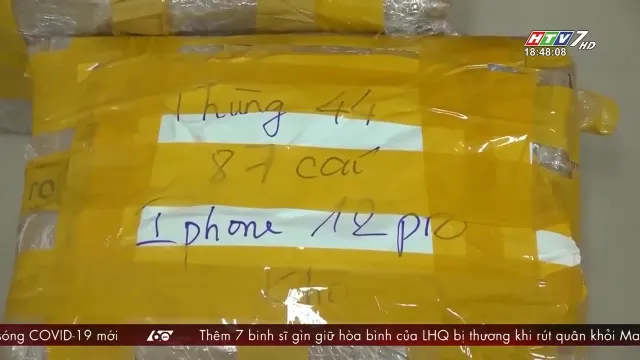 HTV7 HD
18:48:08
Thùng 44
87 cái
Iphone 12 pro
ro
sóng COVID-19 mới 60 Thêm 7 binh sĩ gìn giữ hòa bình của LHQ bị thương khi rút quân khỏi Ma